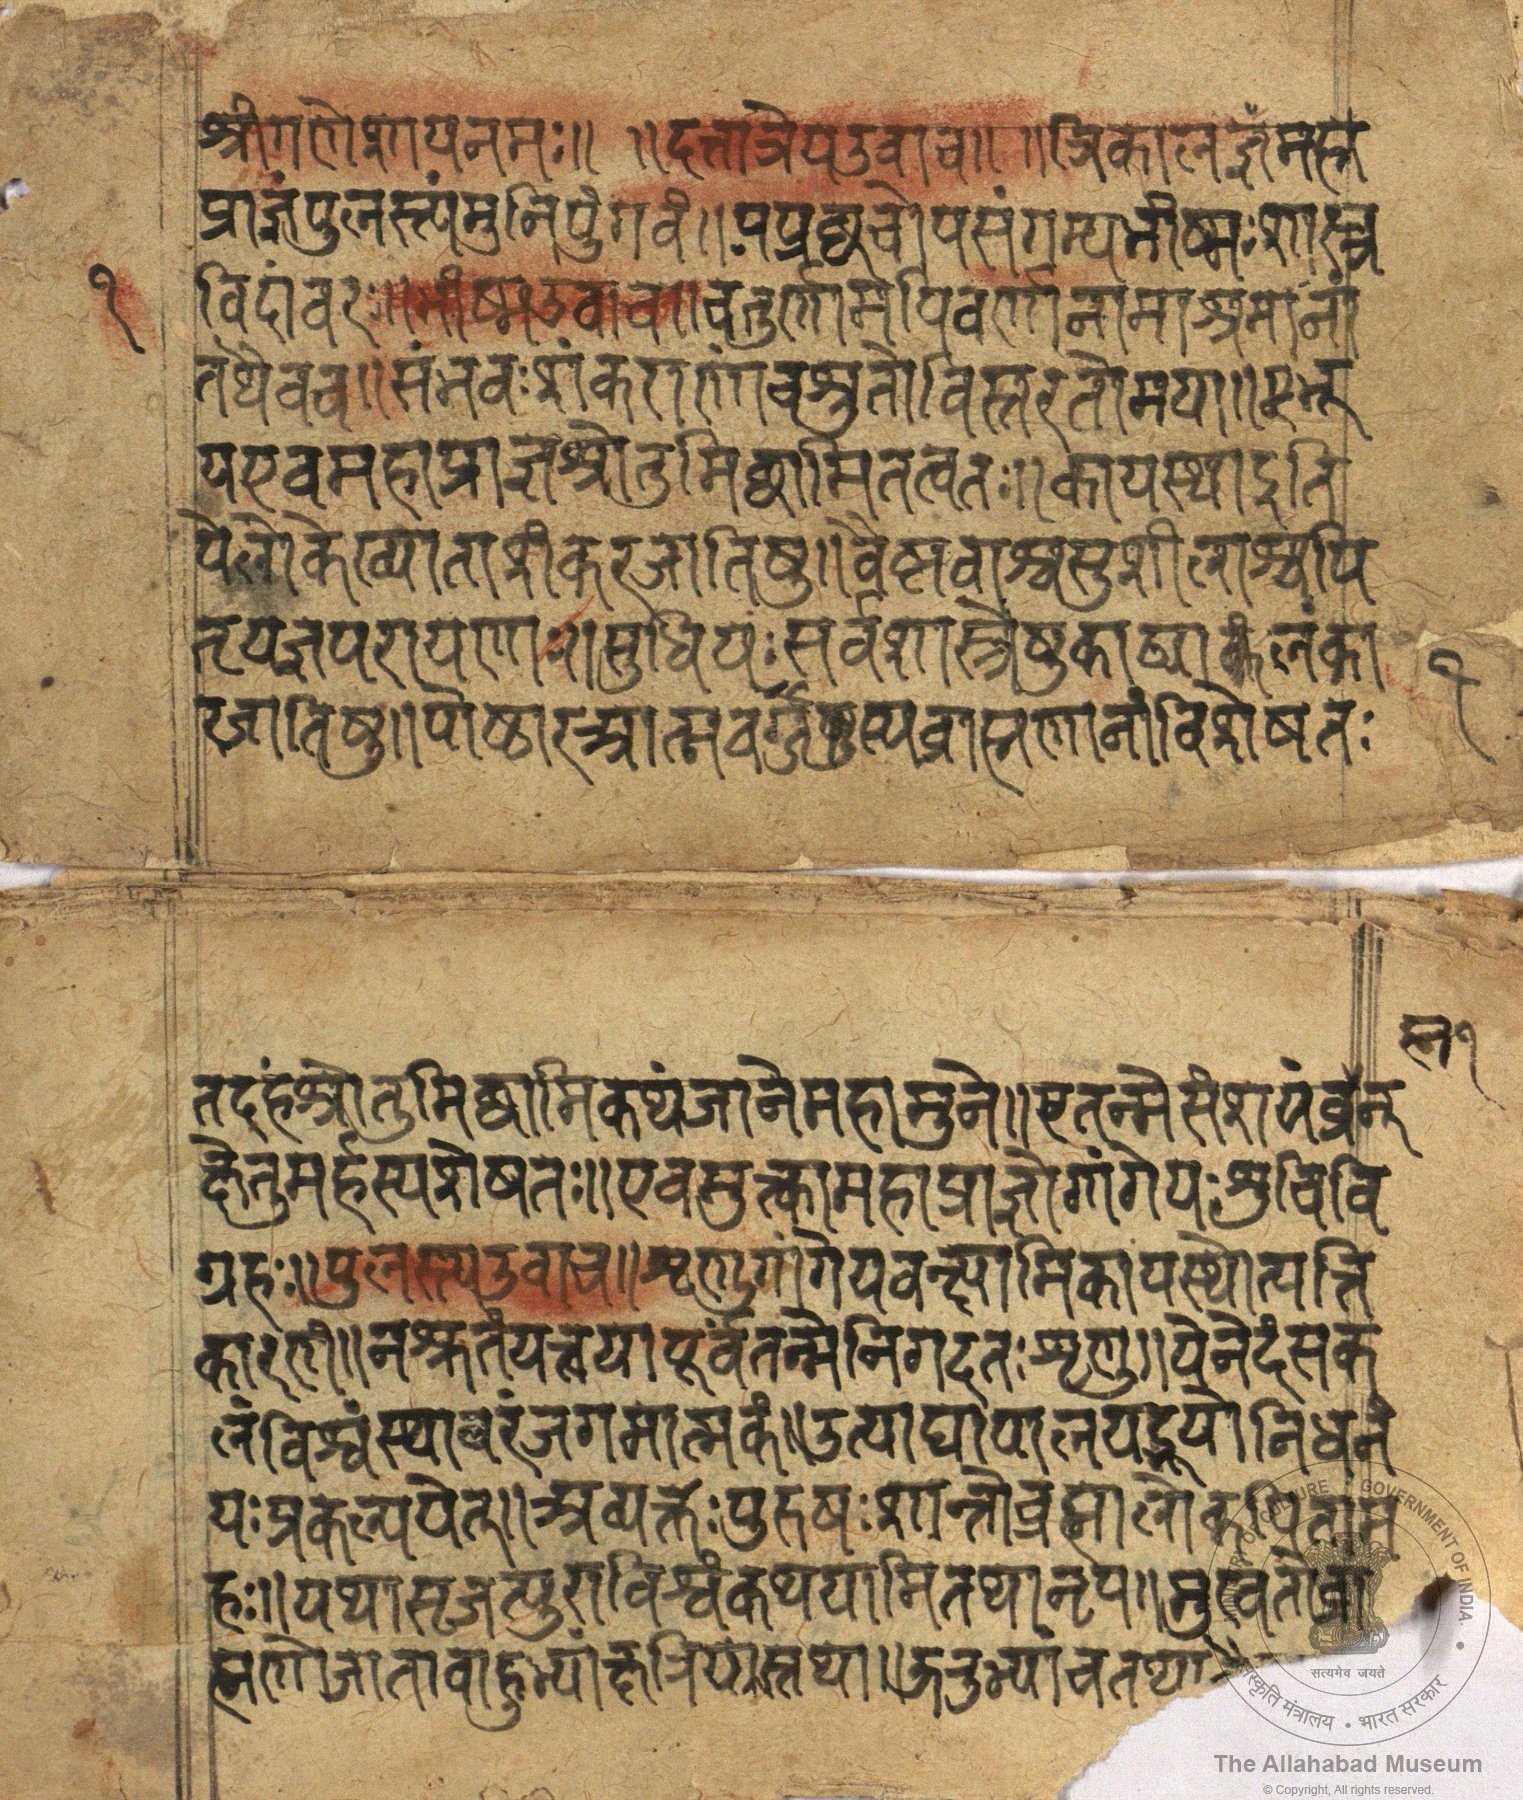 श्रीगणेशायनमः॥ ॥दत्तात्रेयउवाच॥ ॥त्रिकालज्ञंमहा
प्राज्ञंपुलस्त्यंमुनिपुंगवं॥पप्रछचोपसंगम्यभीष्मःशास्त्र
१
विदांवरः॥भीष्मउवाच॥चतुर्णामपिवर्णानामाश्रमानां
तथैवच॥संभवःशंकराणांचश्रुतोविस्तरतोमया॥
यएवमहाप्राज्ञश्रोतुमिछामितत्वतः॥कायस्थाइति
पेलोकेख्याताशंकरजातिषु॥वैष्णवाश्चसुशीलाश्चपि
तृयज्ञपरायणाः॥सुधियःसर्वशास्त्रेषुकाव्यालंका
रजातिषु॥पोष्टारआत्मवर्गस्यब्राह्मणानांविशेषतः
१
तदहंश्रोतुमिछामिकथंजानेमहामुने॥एतन्मेसंशयं
छेतुमर्हस्यशेषतः॥एवमुत्कामहाप्राज्ञोगांगेयःशुचिवि
ग्रहः॥पुलस्त्यउवाच॥शृणुगांगेयवक्ष्यामिकायस्थोत्पत्ति
कारणं॥नश्रुतंयत्त्वयापूर्वंतन्मेनिगदतःशृणु॥येनेदंसक
लंविश्वंस्थावरंजगमात्मकं॥उत्पाद्यपालयद्भूयोनिधनं
यःप्रकल्पयेत्॥अव्यक्तःपुरुषःशान्तोब्रह्मालोकपिताम
हः॥यथासृजत्पुराविश्वंकथयामितथानृप॥मुखतोब्रा
ह्मणोजातोबाहुभ्यांक्षत्रियास्तथा॥ऊरुभ्यांचतथा
MINISTRY OF CULTURE GOVERNMENT OF INDIA
सत्यमेव जयते
संस्कृति मंत्रालय • भारत सरकार
The Allahabad Museum
© Copyright, All rights reserved.